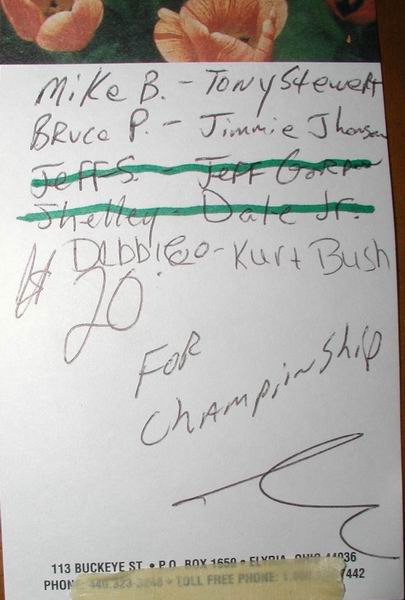 Mike B. - Tony Stewert
Bruce P. - Jimmie Jhonson
Jeff S. - Jeff Gordon
Shelley - Dale Jr.
Debbie - Kurt Bush
$20
FOR
Champinship
113 BUCKEYE ST. • P.O. BOX 1659 • ELYRIA, OHIO 44036
PHONE: 440.323.3248 • TOLL FREE PHONE: 7442